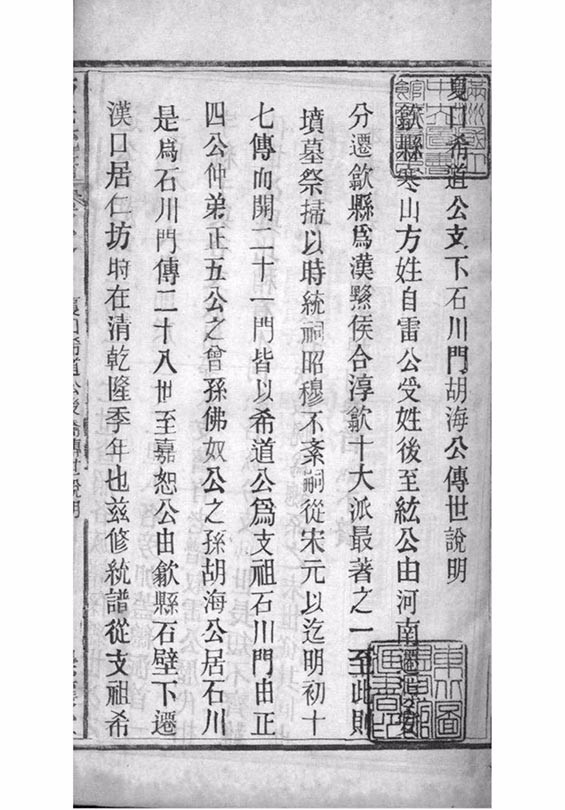 夏口希道公支下石川門胡海公傳世說明
歙縣寒山方姓自雷公受姓後至紘公由河南遷
分遷歙縣爲漢黟侯合淳歙十大派最著之一至此則
墳墓祭掃以時統祠昭穆不紊嗣從宋元以迄明初十
七傳而開二十一門皆以希道公爲支祖石川門由正
四公仲弟正五公之曾孫佛奴公之孫胡海公居石川
是爲石川門傳二十八世至嘉恕公由歙縣石壁下遷
漢口居仁坊時在清乾隆季年也兹修統譜從支祖希
夏口希道公後裔傳世說明